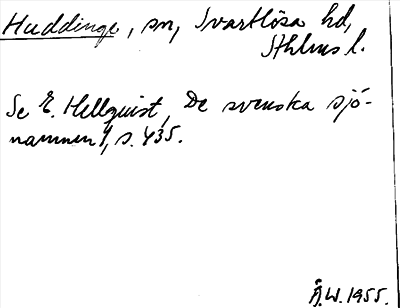 Huddinge, sn, Svartlösa hd,
Sthlms l.
Se E. Hellquist, De svenska sjö-
namnen, s. 435.
Å.W. 1955.